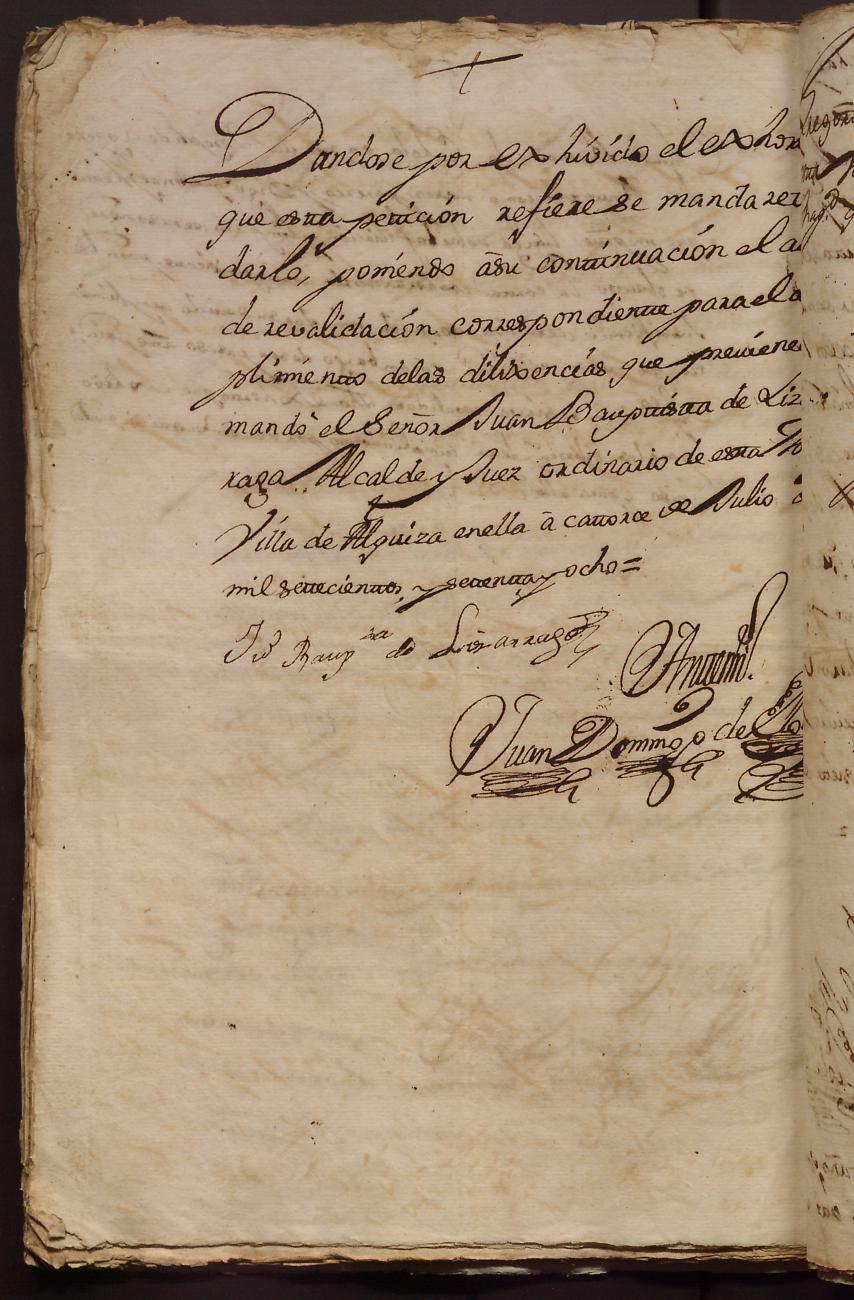 +
Dandose por exhivido el exhor
que esta peticion refiere se manda ret
darlo, poniendo âsu continuacion el a
de revalidación correspondiente para el c
plimiento delas dilixencias que previene
mandò el Señor Juan Bauptista de Liz
raga Alcalde y Juez ordinario de esta
Villa de Alquiza enella â catorce de Julio
mil setecientos, y setenta, y ocho=
Jn Baupta de Lizarraga
Antemi
Juan Domingo de